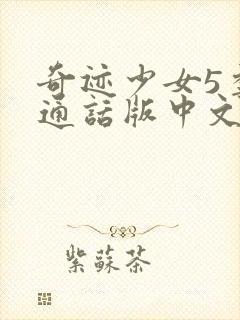 奇迹少女5
通話版中文
紫蘇茶